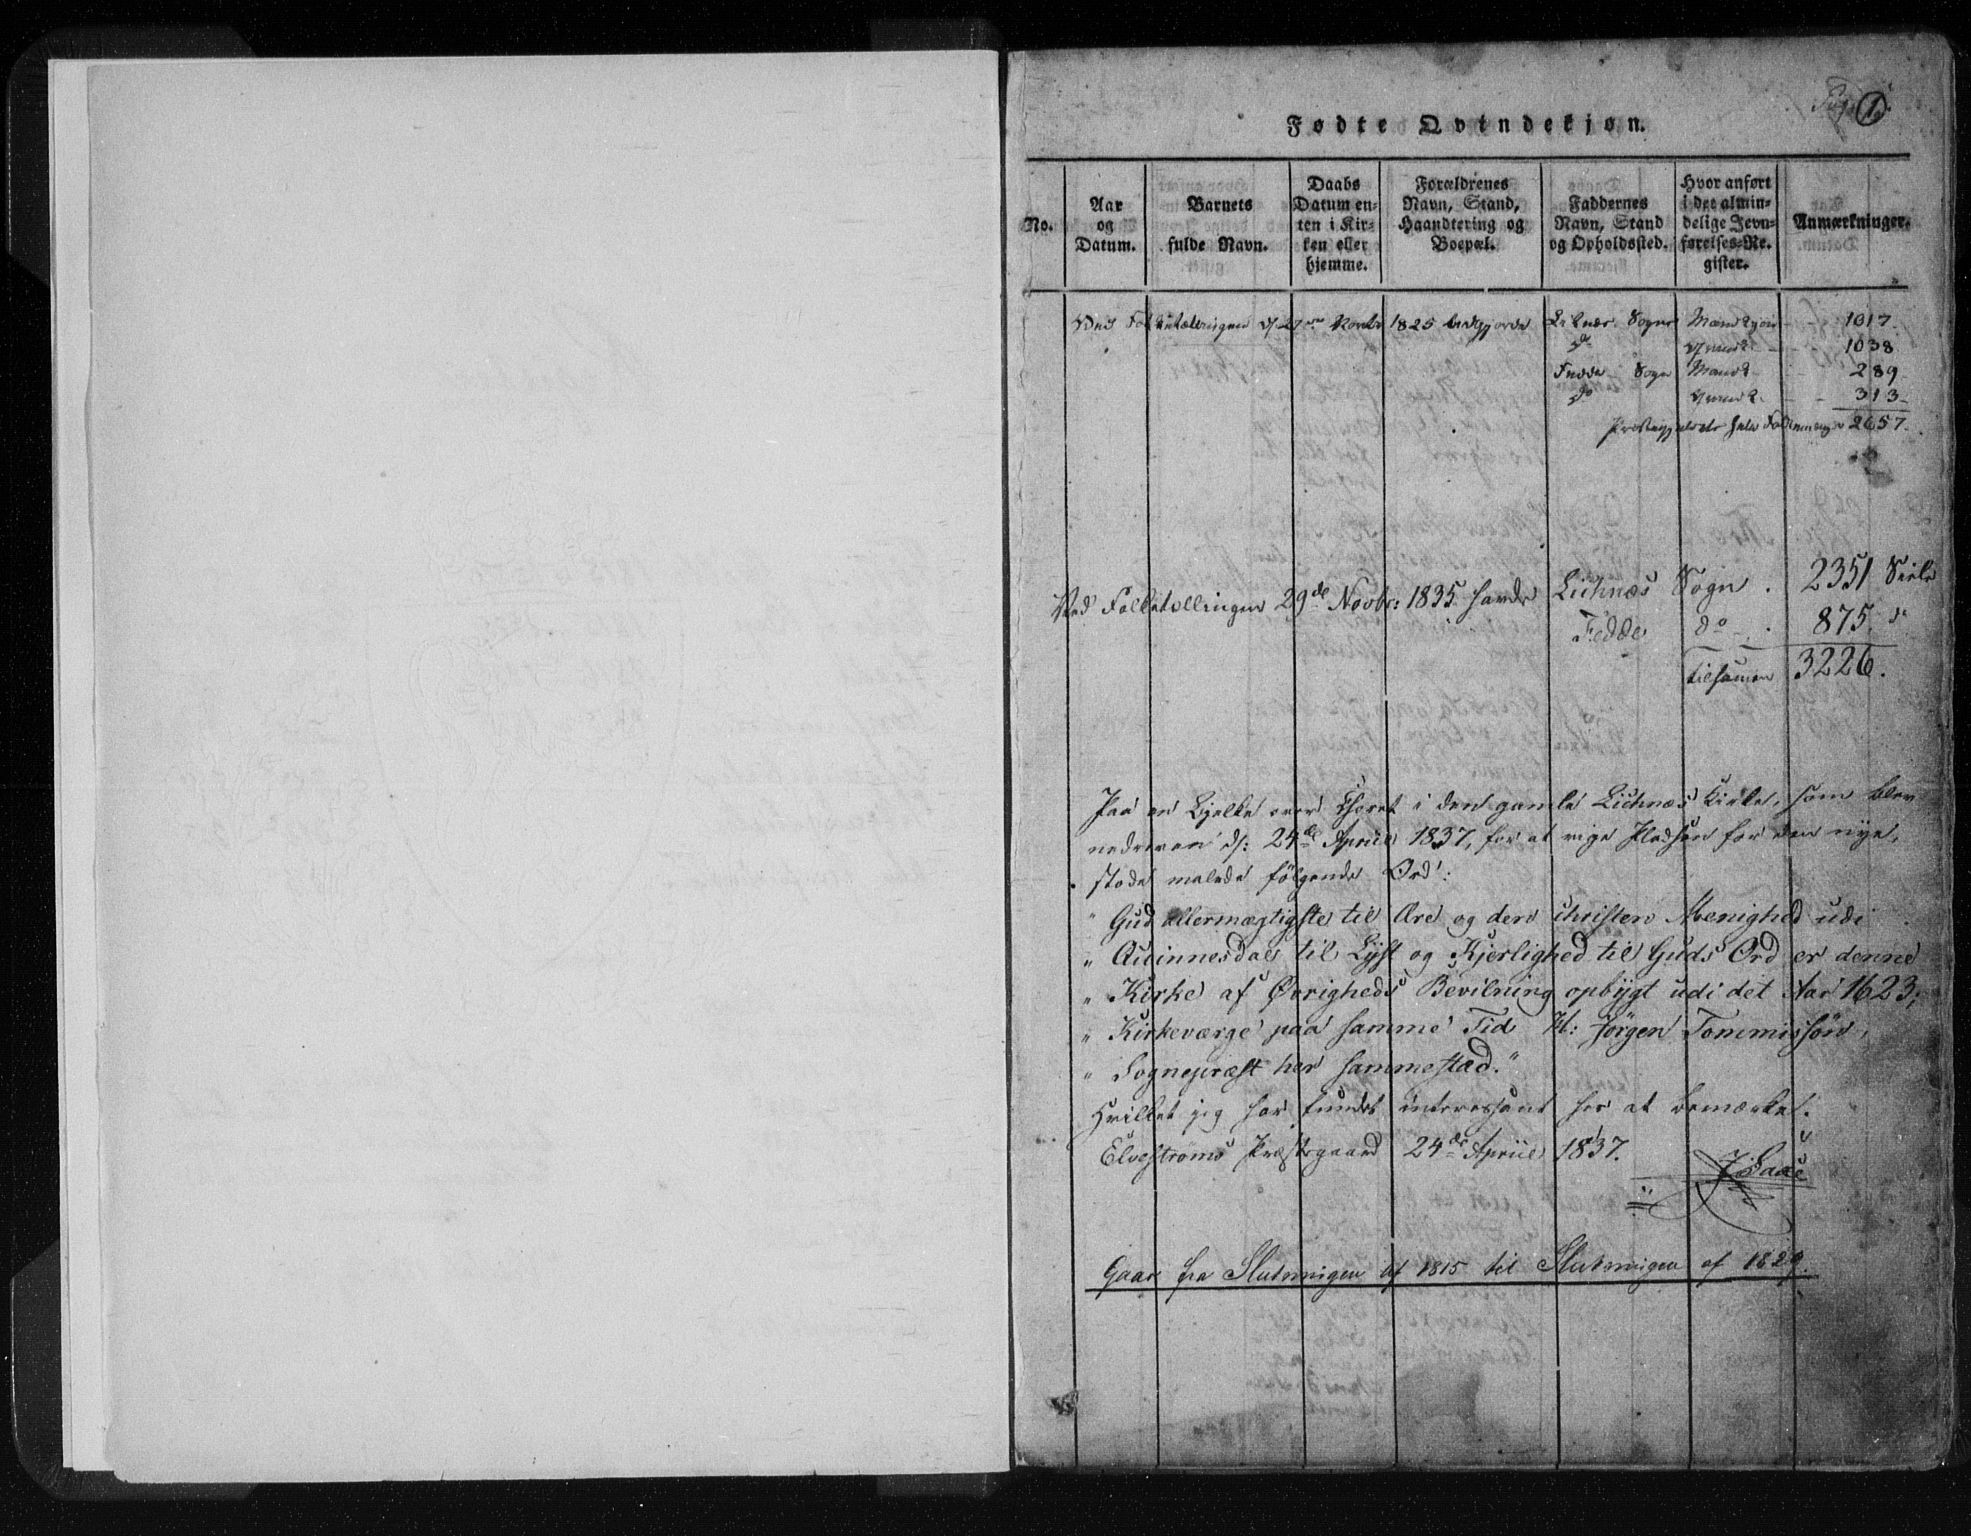 1.
Fødte Qvindekjøn.
No.
Aar
og
Datum.
Barnets
fulde Navn.
Daabs
Datum en-
ten i Kir-
ken eller
hjemme.
Forældrenes
Navn, Stand,
Haandtering og
Boepæl.
Faddernes
Navn, Stand
og Opholdssted.
Hvor anført
i det almin-
delige Jevn-
førelses-Re-
gister.
Anmærkninger.
Ved Folketællingen d. 27 Novbr 1825 udgjorde Liknæs Sogns Mandkjøn 1017
do Qvindk. 1038
Fedde Sogn Mandk. 289
do Qvindk. 313
Præstegjældets hele Folkemængde 2657.
Ved Folketællingen 29de Novbr: 1835 havde Lichnæs Sogn. 2351 Siele
Fedde do. 875. do
tilsamen 3226.
Paa en Bjelke over Choret i den gamle Lichnæs Kirke, som blev
nedreven d: 24de Apriil 1837, for at vige Pladsen for den nye,
stode malede følgende Ord:
" Gud allermægtigste til Ære og den christen Menighed udi
" Quinnesdal til Lyst og Kjerlighed til Guds Ord er denne
" Kirke af Øvrigheds Bevilning opbygt udi det Aar 1623;
" Kirkeværge paa samme Tid H: Jørgen Tommissøn,
" Sognepræst her sammestæd."
Hvilket jeg har fundet interessant her at bemærke.
Elvestrøms Præstegaard 24de Apriil 1837.
Gaar fra Slutningen af 1815 til Slutningen af 1829.